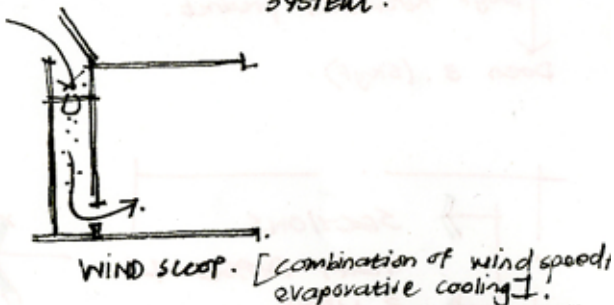 SYSTEM.
WIND SCOOP. [combination of wind speed+
evaporative cooling].